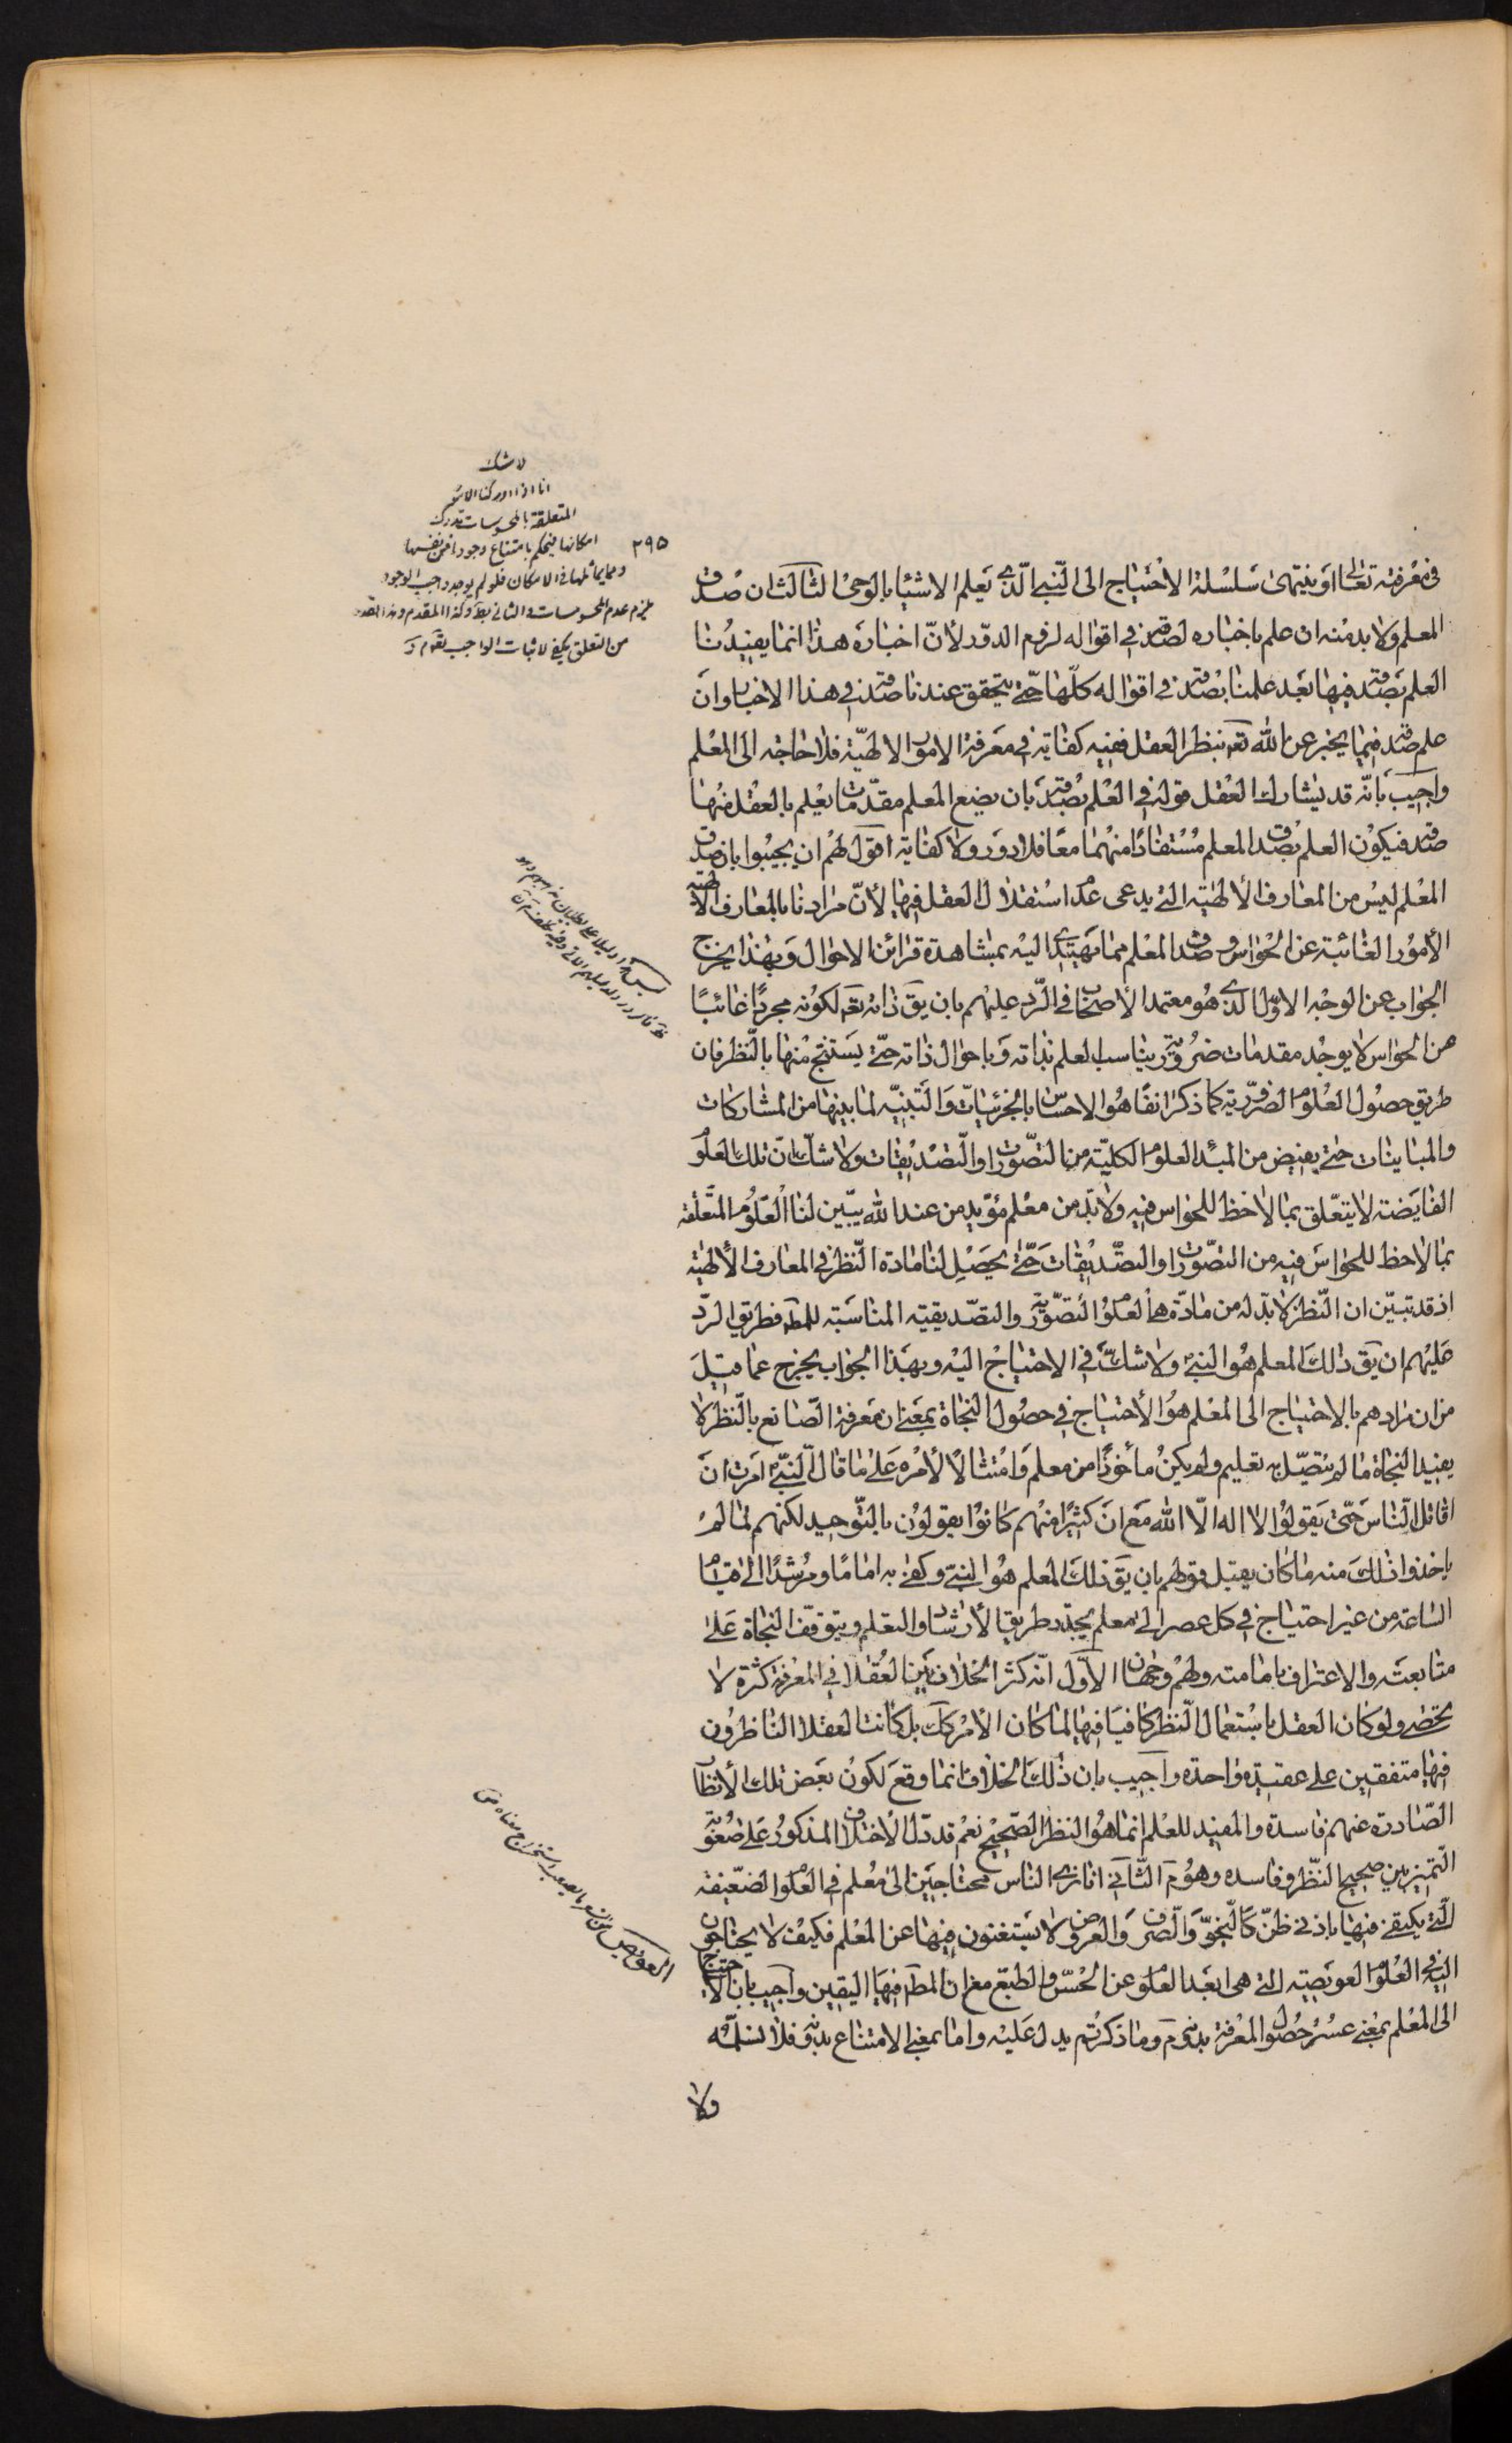 في معرفته تعالى او ينتهى سلسلة الاحتياج الى النبي الذي يعلم الاشيا بالوحى الثالث ان صدق
المعلم ولا بد منه ان علم باخباره لصدقه في اقواله لزم الدور لأنّ اخباره هذا انما يفيدنا
العلم بصدقه فيها بعد علمنا بصدقه في اقواله كلّها حتّى يتحقق عندنا صدقه في هذا الاخبار وان
علم صدقه فيما يخبر عن الله تعه بنظر العقل ففيه كفاية في معرفة الامور الالهيّة فلا حاجة الى المعلم
واجيب بانّه قد يشارك العقل قوله في العلم بصدقه بان يضع المعلم مقدّمات يعلم بالعقل منها
صدقه فيكون العلم بصدق المعلم مستفادا منهما معًا فلا دور ولا كفاية اقول لهم ان يجيبوا بان صدق
المعلم ليس من المعارف الألهيّة التى يدعى عدم استقلال العقل فيها لأنّ مرادنا بالمعارف الالهية
الأمور الغائبة عن الحواس وصدق المعلم مما يهتدى اليه بمشاهدة قرائن الاحوال وبهذا يخرج
الجواب عن الوجه الاوّل الذى هو معتمد الأصحاب في الرّد عليهم بان يق ذاته تعه لكونه مجردًا غائبًا
عن الحواس لا يوجد مقدمات ضرورية يناسب العلم بذاته وباحوال ذاته حتّى يستنتج منها بالنّظر فان
طريق حصول العلوم الضرورية كما ذكر انفًا هو الاحساس بالجزئيات والتنبيه لما بينها من المشاركات
والمباينات حتى يفيض من المبدا العلوم الكلية من التصورات والتصديقات ولا شك ان تلك العلوم
الفايضة لا يتعلق بما لا حظ للحواس فيه ولا بدّ من معلم مؤيد من عند الله يبين لنا العلوم المتعلّقه
بما لا حظ للحواس فيه من التصورات والتصديقات حتى يحصل لنا مادة النظر في المعارف الألهيّه
اذ قد تبيّن ان النظر لا بدّ له من مادّة هى العلوم التصوّرية والتصديقيه المناسبة للمط فطريق الرّد
عليهم ان يق ذلك المعلم هو النبي ولا شك في الاحتياج اليه وبهذا الجواب يخرج عما قيل
من ان مرادهم بالاحتياج الى المعلم هو الأحتياج في حصول النجاة بمعنى ان معرفة الصّانع بالنظر لا
يفيد النجاة ما لم يتصل به تعليم ولم يكن مأخوذا من معلم وامتثالًا لأمره على ما قال النبيّ امرت ان
اقاتل الناس حتّى يقولوا لا اله الّا الله مع ان كثيرا منهم كانوا يقولون بالتوحيد لكنهم لما لم
ياخذوا ذلك منه ما كان يقبل قولهم بان يق ذلك المعلم هو النبي وكفى به امامًا ومرشدًا الى قيام
الساعة من غير احتياج في كل عصر الى معلم يجدد طريق الأرشاد والتعلم ويتوقف النجاة على
متابعته والاعتراف بامامته ولهم وجهان الاوّل انّه كثر الخلاف بين العقلا في المعرفة كثرة لا
تحصى ولو كان العقل باستعمال النظر كافيا فيها لما كان الأمر كك بل كانت العقلا الناظرون
فيها متفقين على عقيدة واحدة واجيب بان ذلك الخلاف انما وقع لكون بعض تلك الأنظار
الصّادرة عنهم فاسدة والمفيد للعلم انما هو النظر الصحيح نعم قد دل الأختلاف المذكور على صعوبة
التميز بين صحيح النظر وفاسده وهو م الثّاني انا نرى الناس محتاجين الى معلم في العلوم الضعيفه
التى يكتفى فيها بادنى ظنّ كالنحو والصرف والعروض لا يستغنون فيها عن المعلم فكيف لا يحتاجون
اليه في العلوم العويصيّه التى هى ابعد العلوم عن الحسّ والطبع مع ان المط فيها اليقين واجيب بان الاحتياج
الى المعلم بمعنى عسر حصول المعرفة بدونه م وما ذكرتم يدل عليه واما بمعنى الامتناع بدونه فلا نسلّمه
ولا
٢٩٥
لا شك
انا اذا ادركنا الامور
المتعلقة بالمحسوسات ندرك
امكانها فيحكم بامتناع وجودها من نفسها
ومما يماثلها في الامكان فلو لم يوجد واجب الوجود
يلزم عدم المحسوسات والثانى بط وكذا المقدم وهذا القدر
من التعلق يكفى لاثبات الواجب